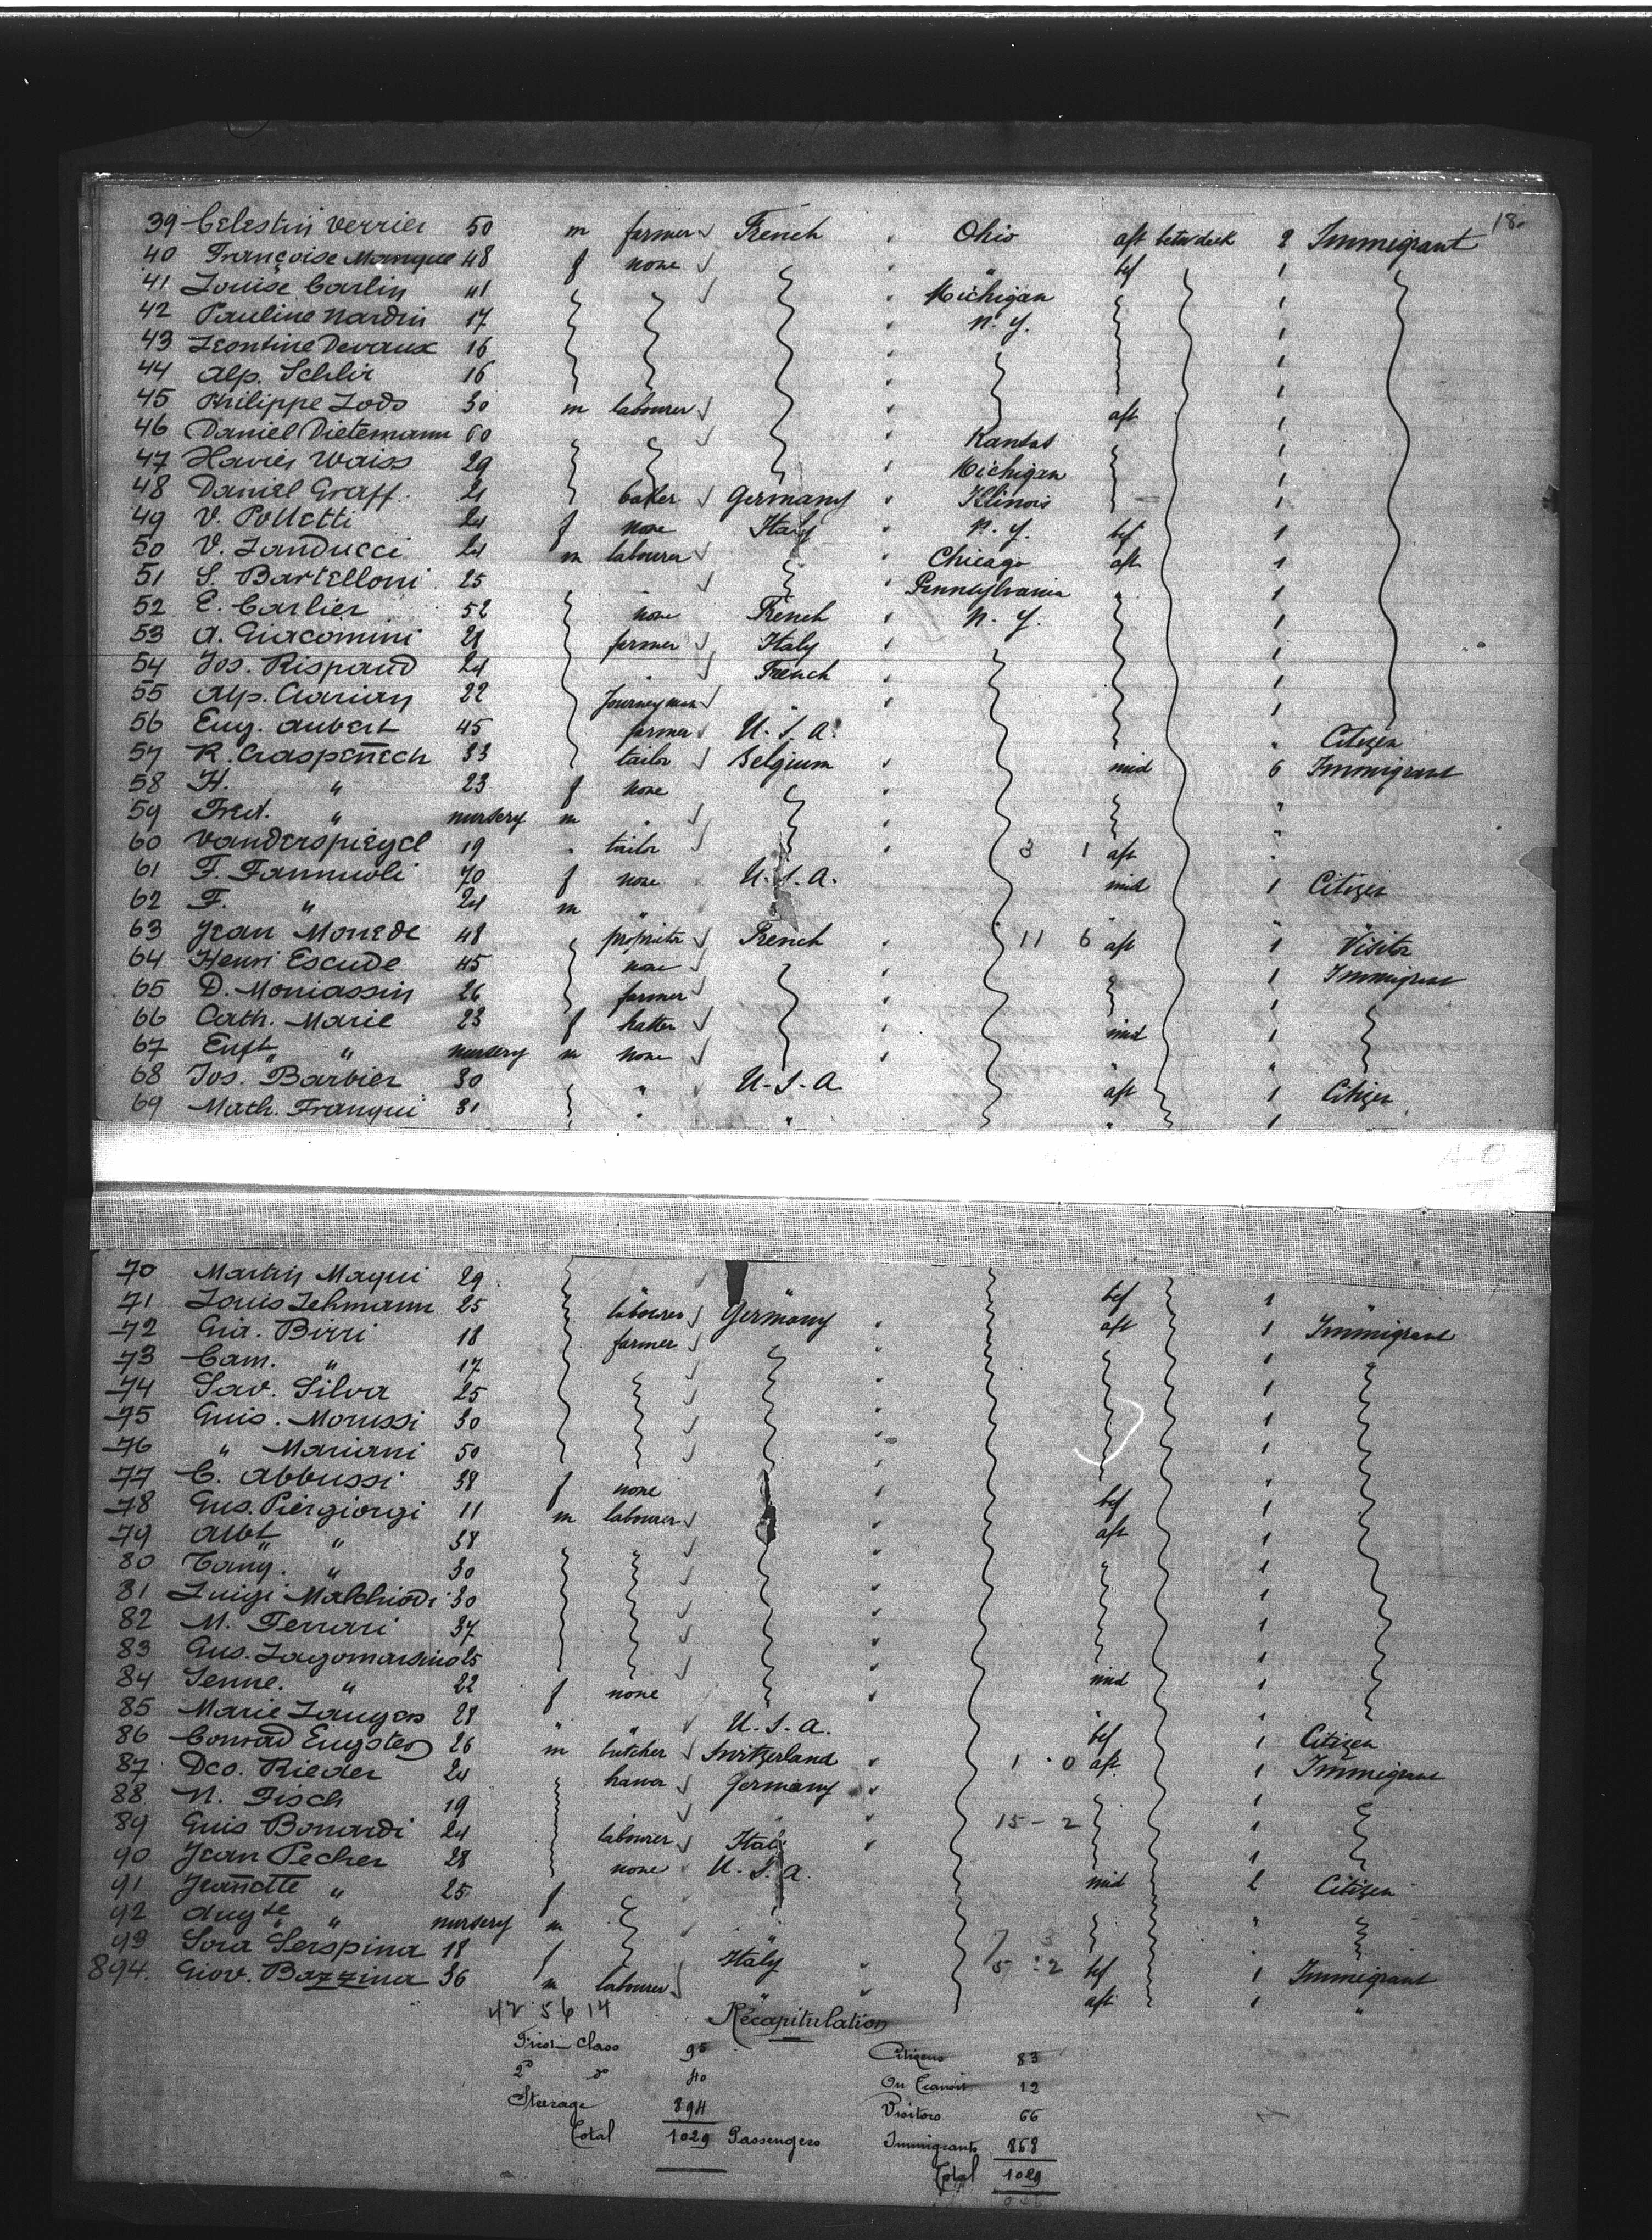 18.
39 Celestin Verrier 50 m farmer French Ohio aft betw deck 2 Immigrant
40 Françoise Mangue 48 f none " " bef 1
41 Louise Carlin 41 Michigan 1
42 Pauline Nardin 17 N. Y. 1
43 Leontine Devaux 16 1
44 Alp. Schlir 16 1
45 Philippe Lods 30 m labourer aft 1
46 Daniel Dietemann 60 Kansas 1
47 Havier Waiss 29 Michigan 1
48 Daniel Graff. 21 baker Germany Illinois 1
49 V. Polletti 24 f none Italy N. Y. bef 1
50 V. Landucci 24 m labourer Chicago aft 1
51 S. Bartelloni 25 Pennsylvania " 1
52 E. Carlier 52 none French N. Y. 1
53 A. Giacomini 21 farmer Italy 1
54 Jos. Rispaud 24 " French 1
55 Alp. Clarian 22 Journeyman " 1
56 Eug. Aubert 45 farmer U. S. A. " Citizen
57 R. Craspenech 33 tailor Belgium mid 6 Immigrant
58 H. " 23 f none "
59 Fred. " nursery m " "
60 Vanderspiegel 19 " tailor 3 1 aft "
61 F. Fannuoli 70 f none U. S. A. mid 1 Citizen
62 F. " 24 m " " " "
63 Jean Monede 48 proprietor French 11 6 aft 1 Visitor
64 Henri Escude 45 none 1 Immigrant
65 D. Moniassin 26 farmer 1
66 Cath. Marie 23 f hatter mid 1
67 Enft " nursery m none " "
68 Jos. Barbier 30 " U. S. A. aft 1 Citizen
69 Math. Franqui 31 " " " 1
70 Martin Maqui 29 " " bef 1 "
71 Louis Lehmann 25 labourer Germany aft 1 Immigrant
72 Gia. Birri 18 farmer 1 "
73 Cam. " 17 1
74 Sav. Silva 25 1
75 Guis. Morussi 30 1
76 " Mariani 50 "
77 C. Abbussi 38 f none bef 1
78 Gus. Piergiorgi 11 m labourer aft 1
79 Albt " 38 1
80 Tang. " 30 1
81 Luigi Malchiodi 30 1
82 M. Ferrari 37 1
83 Gus. Lagomarsino 25 1
84 Jenne. " 22 f none mid "
85 Marie Langas 28 " " U. S. A. bef 1 Citizen
86 Conrad Eugster 26 m butcher Switzerland 1 0 aft 1 Immigrant
87 Deo. Rieder 24 Germany 1
88 N. Fisch 19 " 15 - 2 1
89 Guis Bonardi 24 labourer Italy 1
90 Jean Pecher 28 none U. S. A. mid 2 Citizen
91 Jeanette " 25 f "
92 Augste " nursery m " 7 3 "
93 Sora Serspina 18 f Italy 5 : 2 bef 1 Immigrant
894. Giov. Bazzina 36 m labourer " aft 1 "
42 5 6 14 Récapitulation
First Class 95 Citizens 83
2d do 40 On Transit 12
Steerage 894 Visitors 66
Total 1029 Passengers Immigrants 868
Total 1029